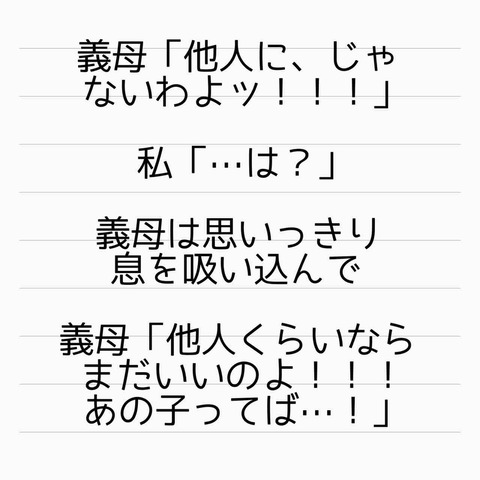 義母「他人に、じゃ
ないわよッ！！！」
私「…は？」
義母は思いっきり
息を吸い込んで
義母「他人くらいなら
まだいいのよ！！！
あの子ってば…！」